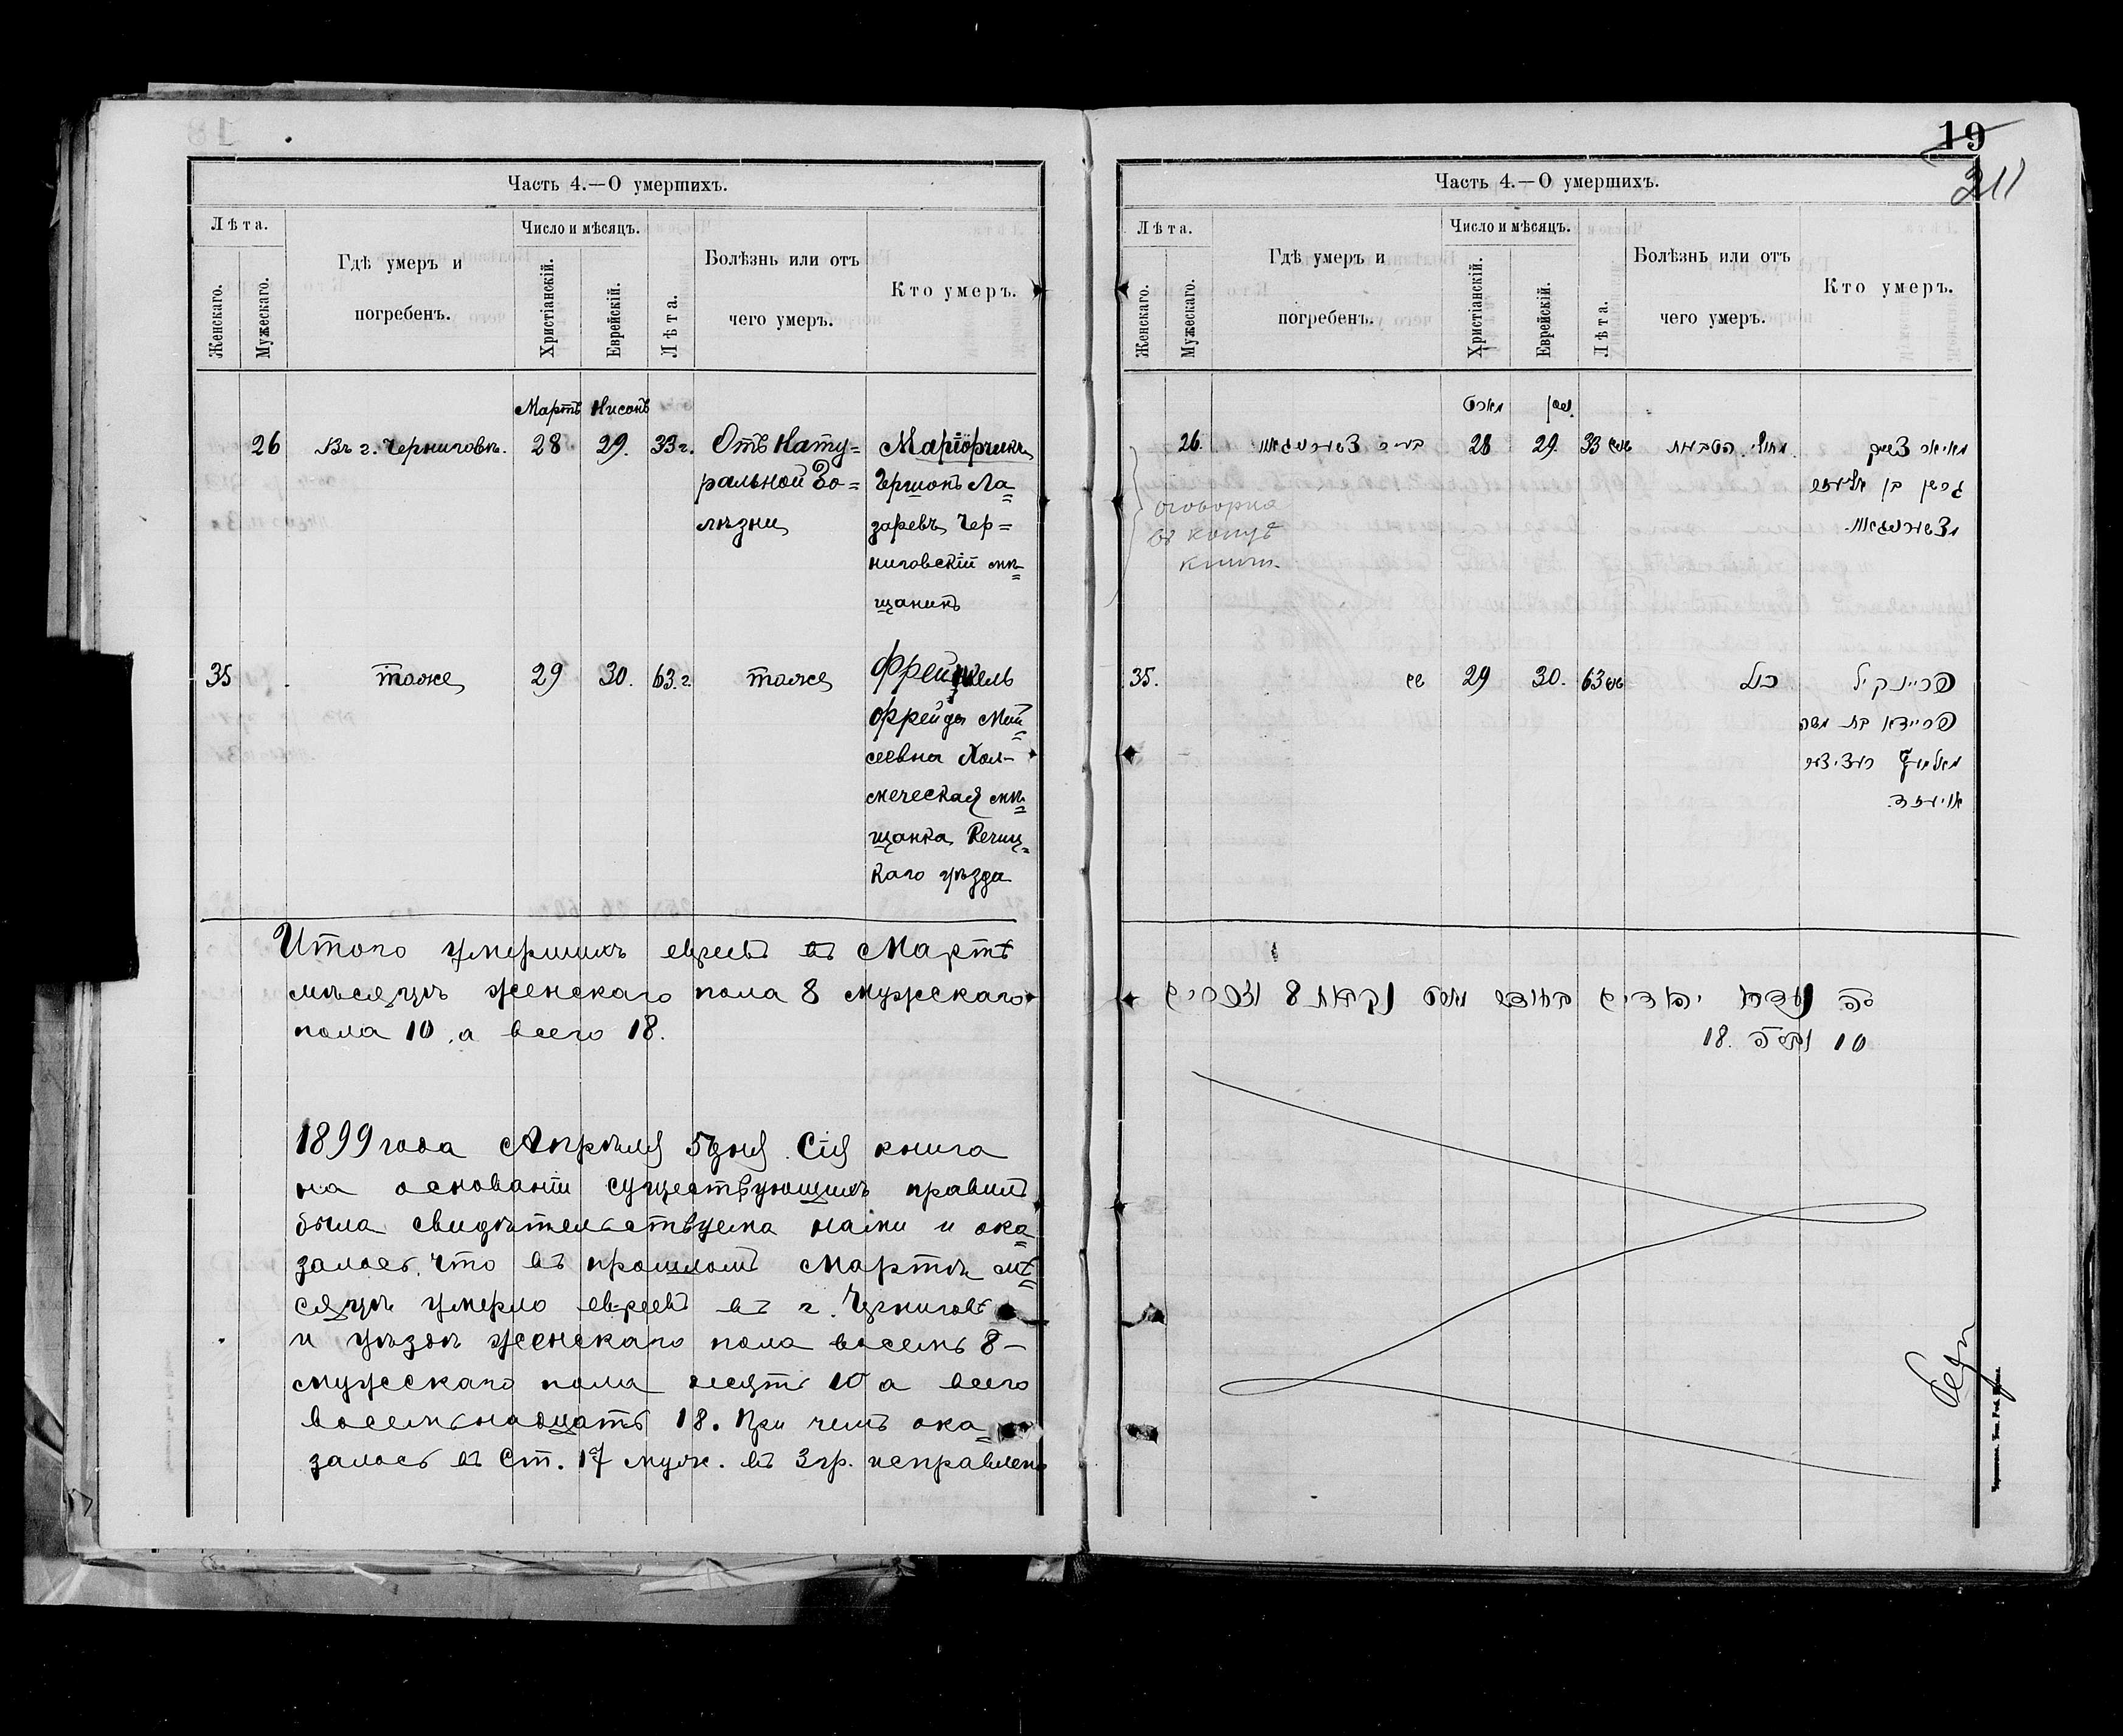 Часть 4.—О умершихъ.
Лѣта.
Женскаго.
Мужескаго.
Гдѣ умеръ и
погребенъ.
Число и мѣсяцъ.
Христіанскій.
Еврейскій.
Лѣта.
Болѣзнь или отъ
чего умеръ.
Кто умеръ.
Мартъ Нисонъ
26 Въ г. Черниговѣ. 28 29. 33 г. Отъ Нату=
ральной Бо=
лѣзни
Гершонъ Ла=
заревъ Чер=
ниговскій мѣ=
щанинъ
35 тоже 29 30. 63. г. тоже
Фрейда Мой=
сеевна Хол=
меческая мѣ=
щанка Речиц=
каго уѣзда
Итого умершихъ евреевъ въ Мартѣ
мѣсяцѣ женскаго пола 8 мужескаго
пола 10, а всего 18.
1899 года Апрѣля 5 дня Сія книга
на основаніи существующихъ правилъ
была свидѣтельствуема нами и ока=
залось, что въ прошломъ Мартѣ мѣ=
сяцѣ умерло евреевъ въ г. Черниговѣ
и уѣздѣ женскаго пола восемь 8 —
мужескаго пола десять 10 а всего
восемьнадцать 18. При чемъ ока=
залось въ Ст. 17 муж. въ 3 гр. исправлено
19
211
Часть 4.—О умершихъ.
Лѣта.
Женскаго.
Мужескаго.
Гдѣ умеръ и
погребенъ.
Число и мѣсяцъ.
Христіанскій.
Еврейскій.
Лѣта.
Болѣзнь или отъ
чего умеръ.
Кто умеръ.
מארט ניסן
26. 28 29. 33
גרשן בן אליעזר
оговорка
въ концѣ
книги.
35. 29 30. 63 פריינקיל
פריידא בת משה
יהודים בחודש מארט נקבות 8
10 18.